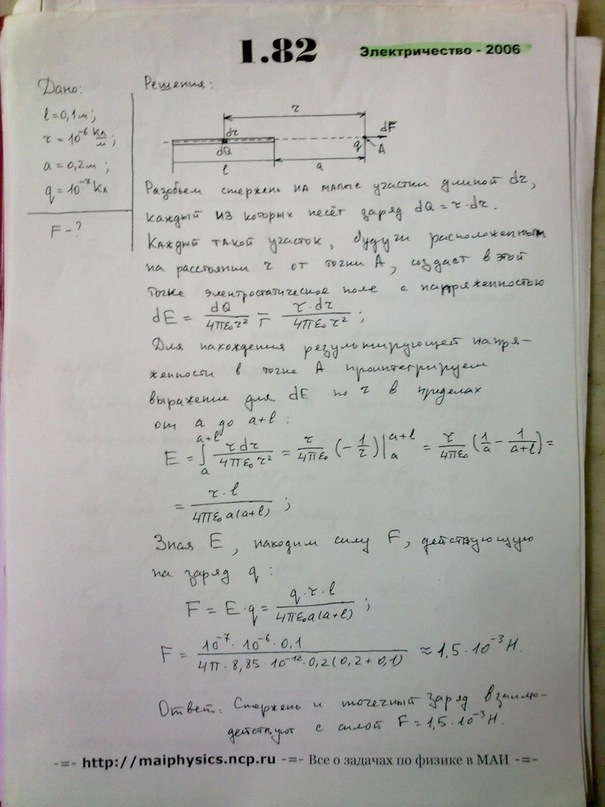 1.82
Электричество - 2006
Дано:
l = 0,1 м;
τ = 10⁻⁶ Кл/м;
a = 0,2 м;
q = 10⁻⁷ Кл
F - ?
Решения:
r
dr
dF
dQ
q
A
l
a
Разобьем стержень на малые участки длиной dr,
каждый из которых несёт заряд dQ = τ·dr.
Каждый такой участок, будучи расположенным
на расстоянии r от точки A, создаст в этой
точке электростатическое поле с напряженностью
dE = dQ/4πε₀r² = τ·dr/4πε₀r² ;
Для нахождения результирующей напря-
женности в точке A проинтегрируем
выражение для dE по r в пределах
от a до a+l :
E = ∫ₐᵃ⁺ˡ τdr/4πε₀r² = τ/4πε₀ (-1/r)|ₐᵃ⁺ˡ = τ/4πε₀ (1/a - 1/(a+l)) =
= τ·l/4πε₀a(a+l) ;
Зная E, находим силу F, действующую
на заряд q :
F = E·q = q·τ·l/4πε₀a(a+l) ;
F = 10⁻⁷·10⁻⁶·0,1/4π·8,85·10⁻¹²·0,2(0,2+0,1) ≈ 1,5·10⁻³ Н.
Ответ: Стержень и точечный заряд взаимо-
действуют с силой F = 1,5·10⁻³ Н.
-=- http://maiphysics.ncp.ru -=- Все о задачах по физике в МАИ -=-